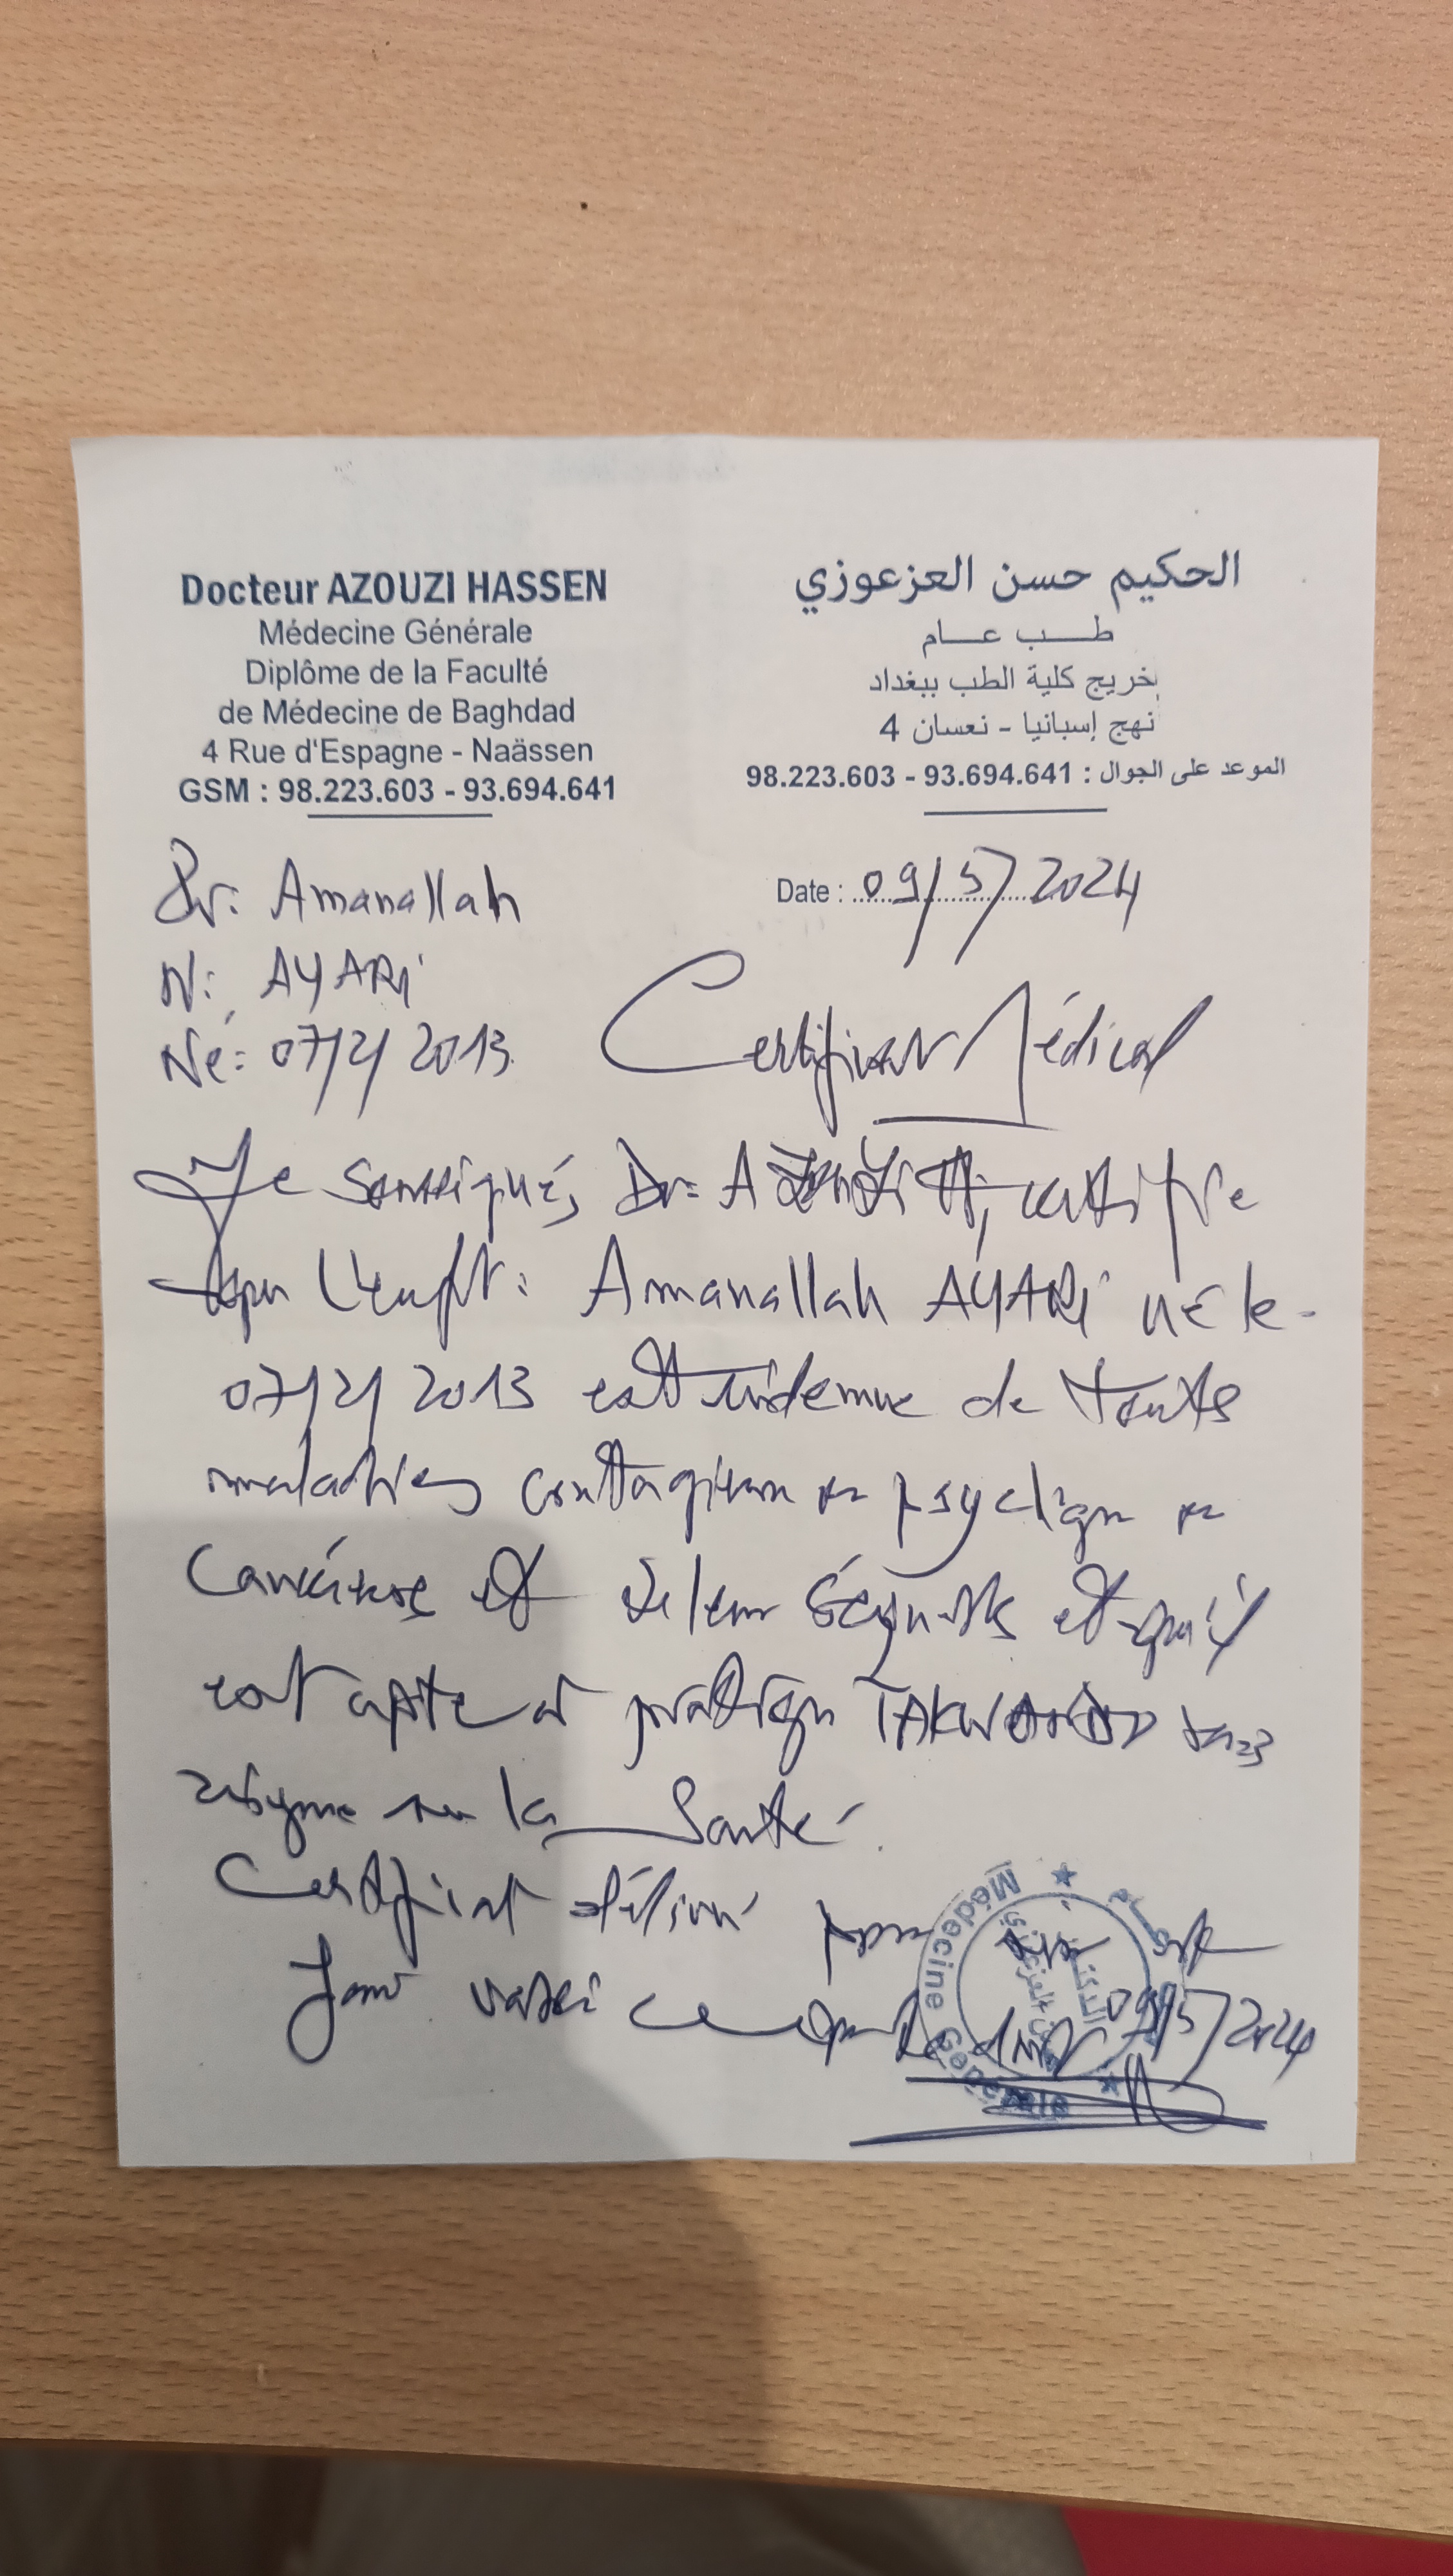 Docteur AZOUZI HASSEN
Médecine Générale
Diplôme de la Faculté
de Médecine de Baghdad
4 Rue d'Espagne - Naässen
GSM : 98.223.603 - 93.694.641
الحكيم حسن العزعوزي
طب عام
خريج كلية الطب ببغداد
4 نهج إسبانيا - نعسان
الموعد على الجوال : 93.694.641 - 98.223.603
Pr: Amanallah
Date : 09/5/2024
N: AYARi
Né: 07/2/2013
Certificat Médical
Je soussigné, Dr: certifie
que l'enft: Amanallah AYARi né le
07/2/2013 est indemne de toutes
maladies contagieuse psychique
cancéreuse et et qu'il
est apte à pratiquer
la Santé.
Certificat délivré pour
valoir ce que de droit 09/5/2024
Médecine Générale